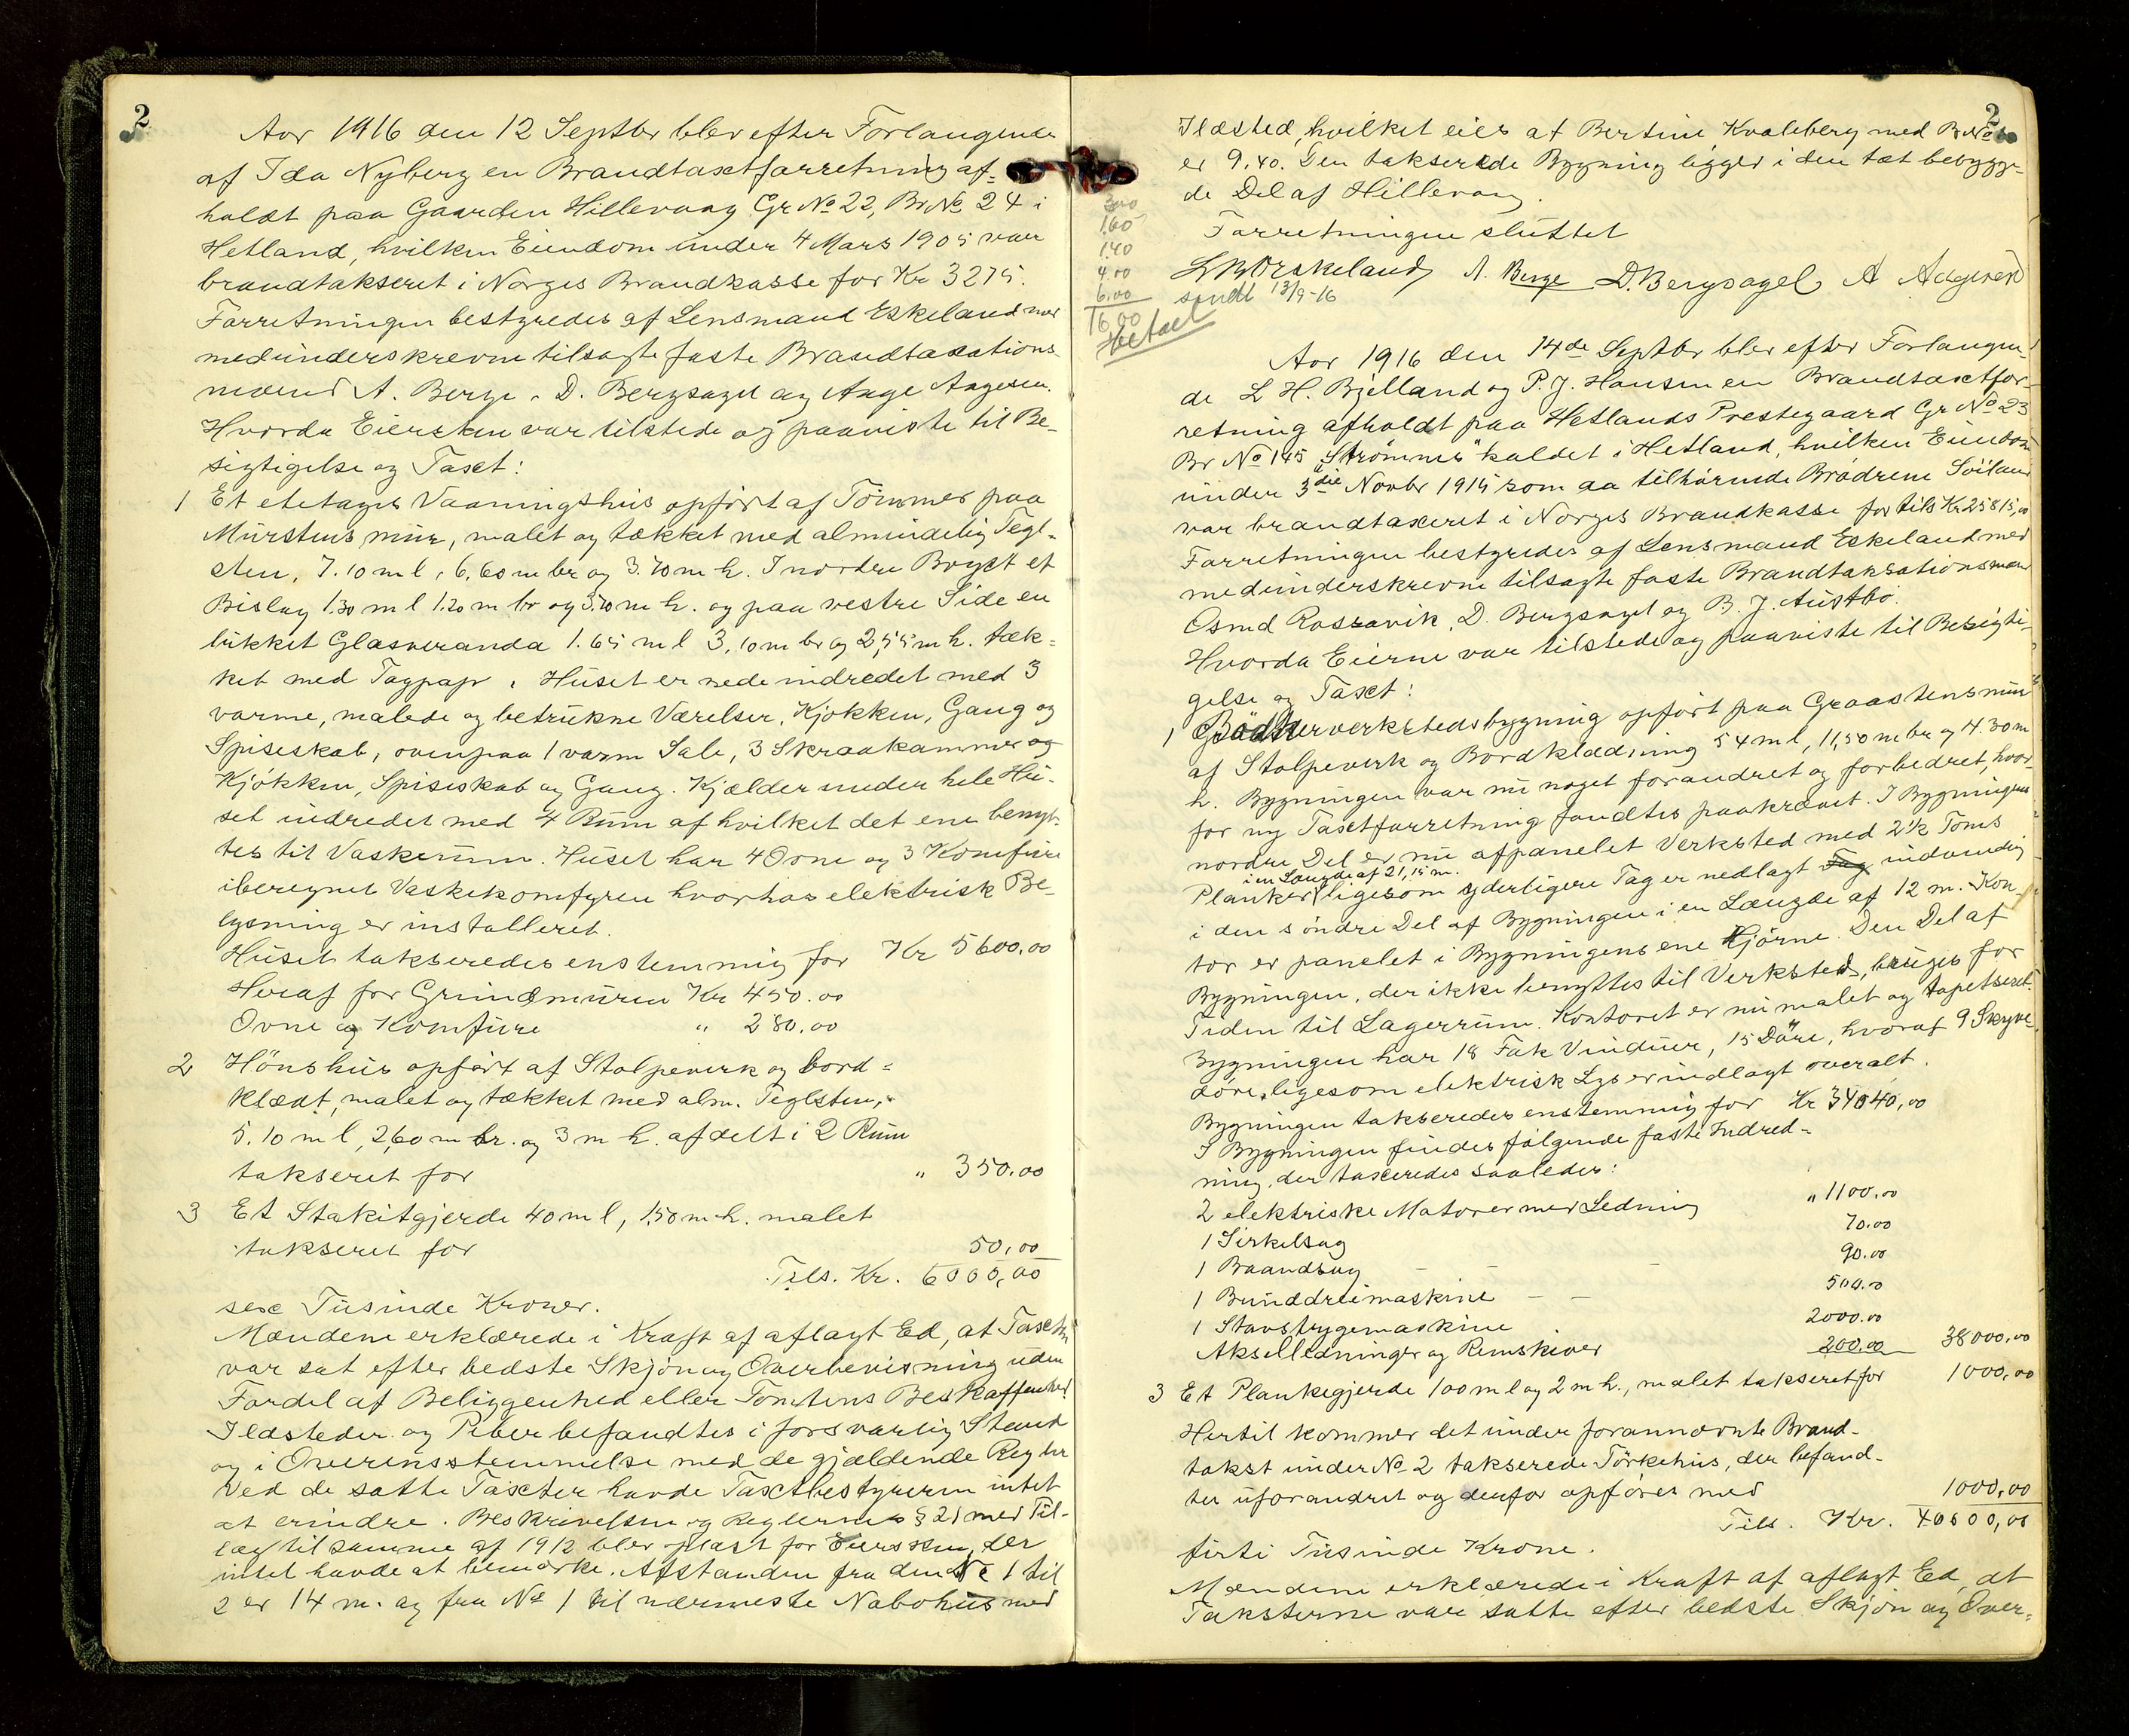 2
Aar 1916 den 12 Septbr blev efter Forlangende
af Ida Nyberg en Brandtaxtforretning af-
holdt paa Gaarden Hillevaag Gr No 22, Br No 24 i
Hetland, hvilken Eiendom under 4 Mars 1905 var
brandtakseret i Norges Brandkasse for Kr 3275.
Forretningen bestyredes af Lensmand Eskeland med
medunderskrevne tilsagte faste Brandtaxations-
mænd A. Berge, D. Bergsagel og Aage Aagesen.
Hvorda Eiersken var tilstede og paaviste til Be-
sigtigelse og Taxt:
1 Et etetages Vaaningshus opført af Tömmer paa
Murstens mur, malet og tækket med almindelig Tegl-
sten, 7.10 m l, 6,60 m br og 3.70 m h. I nordre Bryst et
Bislag 1.30 m l 1.20 m br og 3.70 m h. og paa vestre Side en
lukket Glasveranda 1.65 m l 3,10 m br og 2,55 m h. tæk-
ket med Tagpap. Huset er nede indredet med 3
varme, malede og betrukne Værelser, Kjøkken, Gang og
Spiseskab, ovenpaa 1 varm Sale, 3 Skraakammer og
Kjøkken, Spiseskab og Gang. Kjælder under hele Hu-
set indredet med 4 Rum af hvilket det ene benyt-
tes til Vaskerum. Huset har 4 Ovne og 3 Komfure
iberegnet Vaskekomfyren hvorhos elektrisk Be-
lysning er installeret.
Huset takseredes enstemmig for Kr 5600,00
Heraf for Grundmuren Kr 450.00
Ovne og Komfure " 280.00
2 Hönshus opført af Stolpeverk og bord-
klædt, malet og tækket med alm. Teglsten,
5.10 m l, 2,60 m br. og 3 m h. afdelt i 2 Rum
takseret for " 350.00
3 Et Stakitgjerde 40 m l, 1,50 m h. malet
takseret for 50,00
Tils. Kr. 6000,00
sex Tusinde Kroner.
Mændene erklærede i Kraft af aflagt Ed, at Taxten
var sat efter bedste Skjøn og Overbevisning uden
Fordel af Beliggenhed eller Tomtens Beskaffenhed
Ildsteder og Piber befandtes i forsvarlig Stand
og i Overensstemmelse med de gjældende Regler
Ved de satte Taxter havde Taxtbestyreren intet
at erindre. Beskrivelsen og Reglernes § 21 med Til-
læg til samme af 1912 blev oplæst for Eiersken, der
intet havde at bemærke. Afstanden fra den No 1 til
2 er 14 m. og fra No 1 til nærmeste Nabohus med
2
Ildsted, hvilket eies af Bertine Kvaleberg med Br No
er 9.40. Den takserede Bygning ligger i den tæt bebygge-
de Del af Hillevaag.
Forretningen sluttet
L B Eskeland A. Berge D. Bergsagel A Aagesen
sendt 13/9-16
300
1.60
1.40
4.00
6.00
16,00
Betalt
Aar 1916 den 14de Septbr blev efter Forlangen-
de L H. Bjelland og P. J. Hansen en Brandtaxtfor-
retning afholdt paa Hetlands Prestegaard Gr No 23
Br No 145 "Strømnes" kaldet i Hetland, hvilken Eiendom
under 3die Novbr 1915 som da tilhörende Brødrene Söiland
var brandtaxeret i Norges Brandkasse for tils Kr 25815,00
Forretningen bestyredes af Lensmand Eskeland med
medunderskrevne tilsagte faste Brandtaksationsmæn
Osmd Rossavik, D. Bergsagel og B. J. Austbø.
Hvorda Eierne var tilstede og paaviste til Besigti-
gelse og Taxt:
1 Bødkerverkstedsbygning opført paa Graastensmur
af Stolpeverk og Bordklædning 54 m l, 11,50 m br og 4.30 m
h. Bygningen var nu noget forandret og forbedret, hvor-
for ny Taxtforretning fandtes paakrævet. I Bygningens
nordre Del er nu afpanelet Verksted med 2 1/2 Toms
i en Længde af 21,15 m.
Planker ligesom yderligere Tag er nedlagt Tag indvendig
i den söndre Del af Bygningen i en Længde af 12 m. Kon-
tor er panelet i Bygningens ene Hjörne. Den Del af
Bygningen, der ikke benyttes til Verksted, bruges for
Tiden til Lagerrum. Kontoret er nu malet og tapetseret.
Bygningen har 18 Fak Vinduer, 15 Döre, hvoraf 9 Skyve-
döre, ligesom elektrisk Lys er indlagt overalt.
Bygningen takseredes enstemmig for Kr 34040,00
I Bygningen findes følgende faste Indred-
ning, der taxeredes saaledes:
2 elektriske Motorer med Ledning " 1100.00
1 Sirkelsag 70.00
1 Baandsag - - 90.00
1 Bunddreimaskine - - 500.00
1 Stavstrygemaskine 2000.00
Akselledninger og Remskiver 200.00 38000,00
3 Et Plankegjerde 100 m l og 2 m h., malet takseret for 1000,00
Hertil kommer det under forannævnte Brand-
takst under No 2 takserede Törkehus, der befand-
tes uforandret og derfor opføres med 1000,00
Tils. Kr. 40000,00
firti Tusinde Krone.
Mændene erklærede i Kraft af aflagt Ed, at
Taksterne var satte efter bedste Skjön og Over-